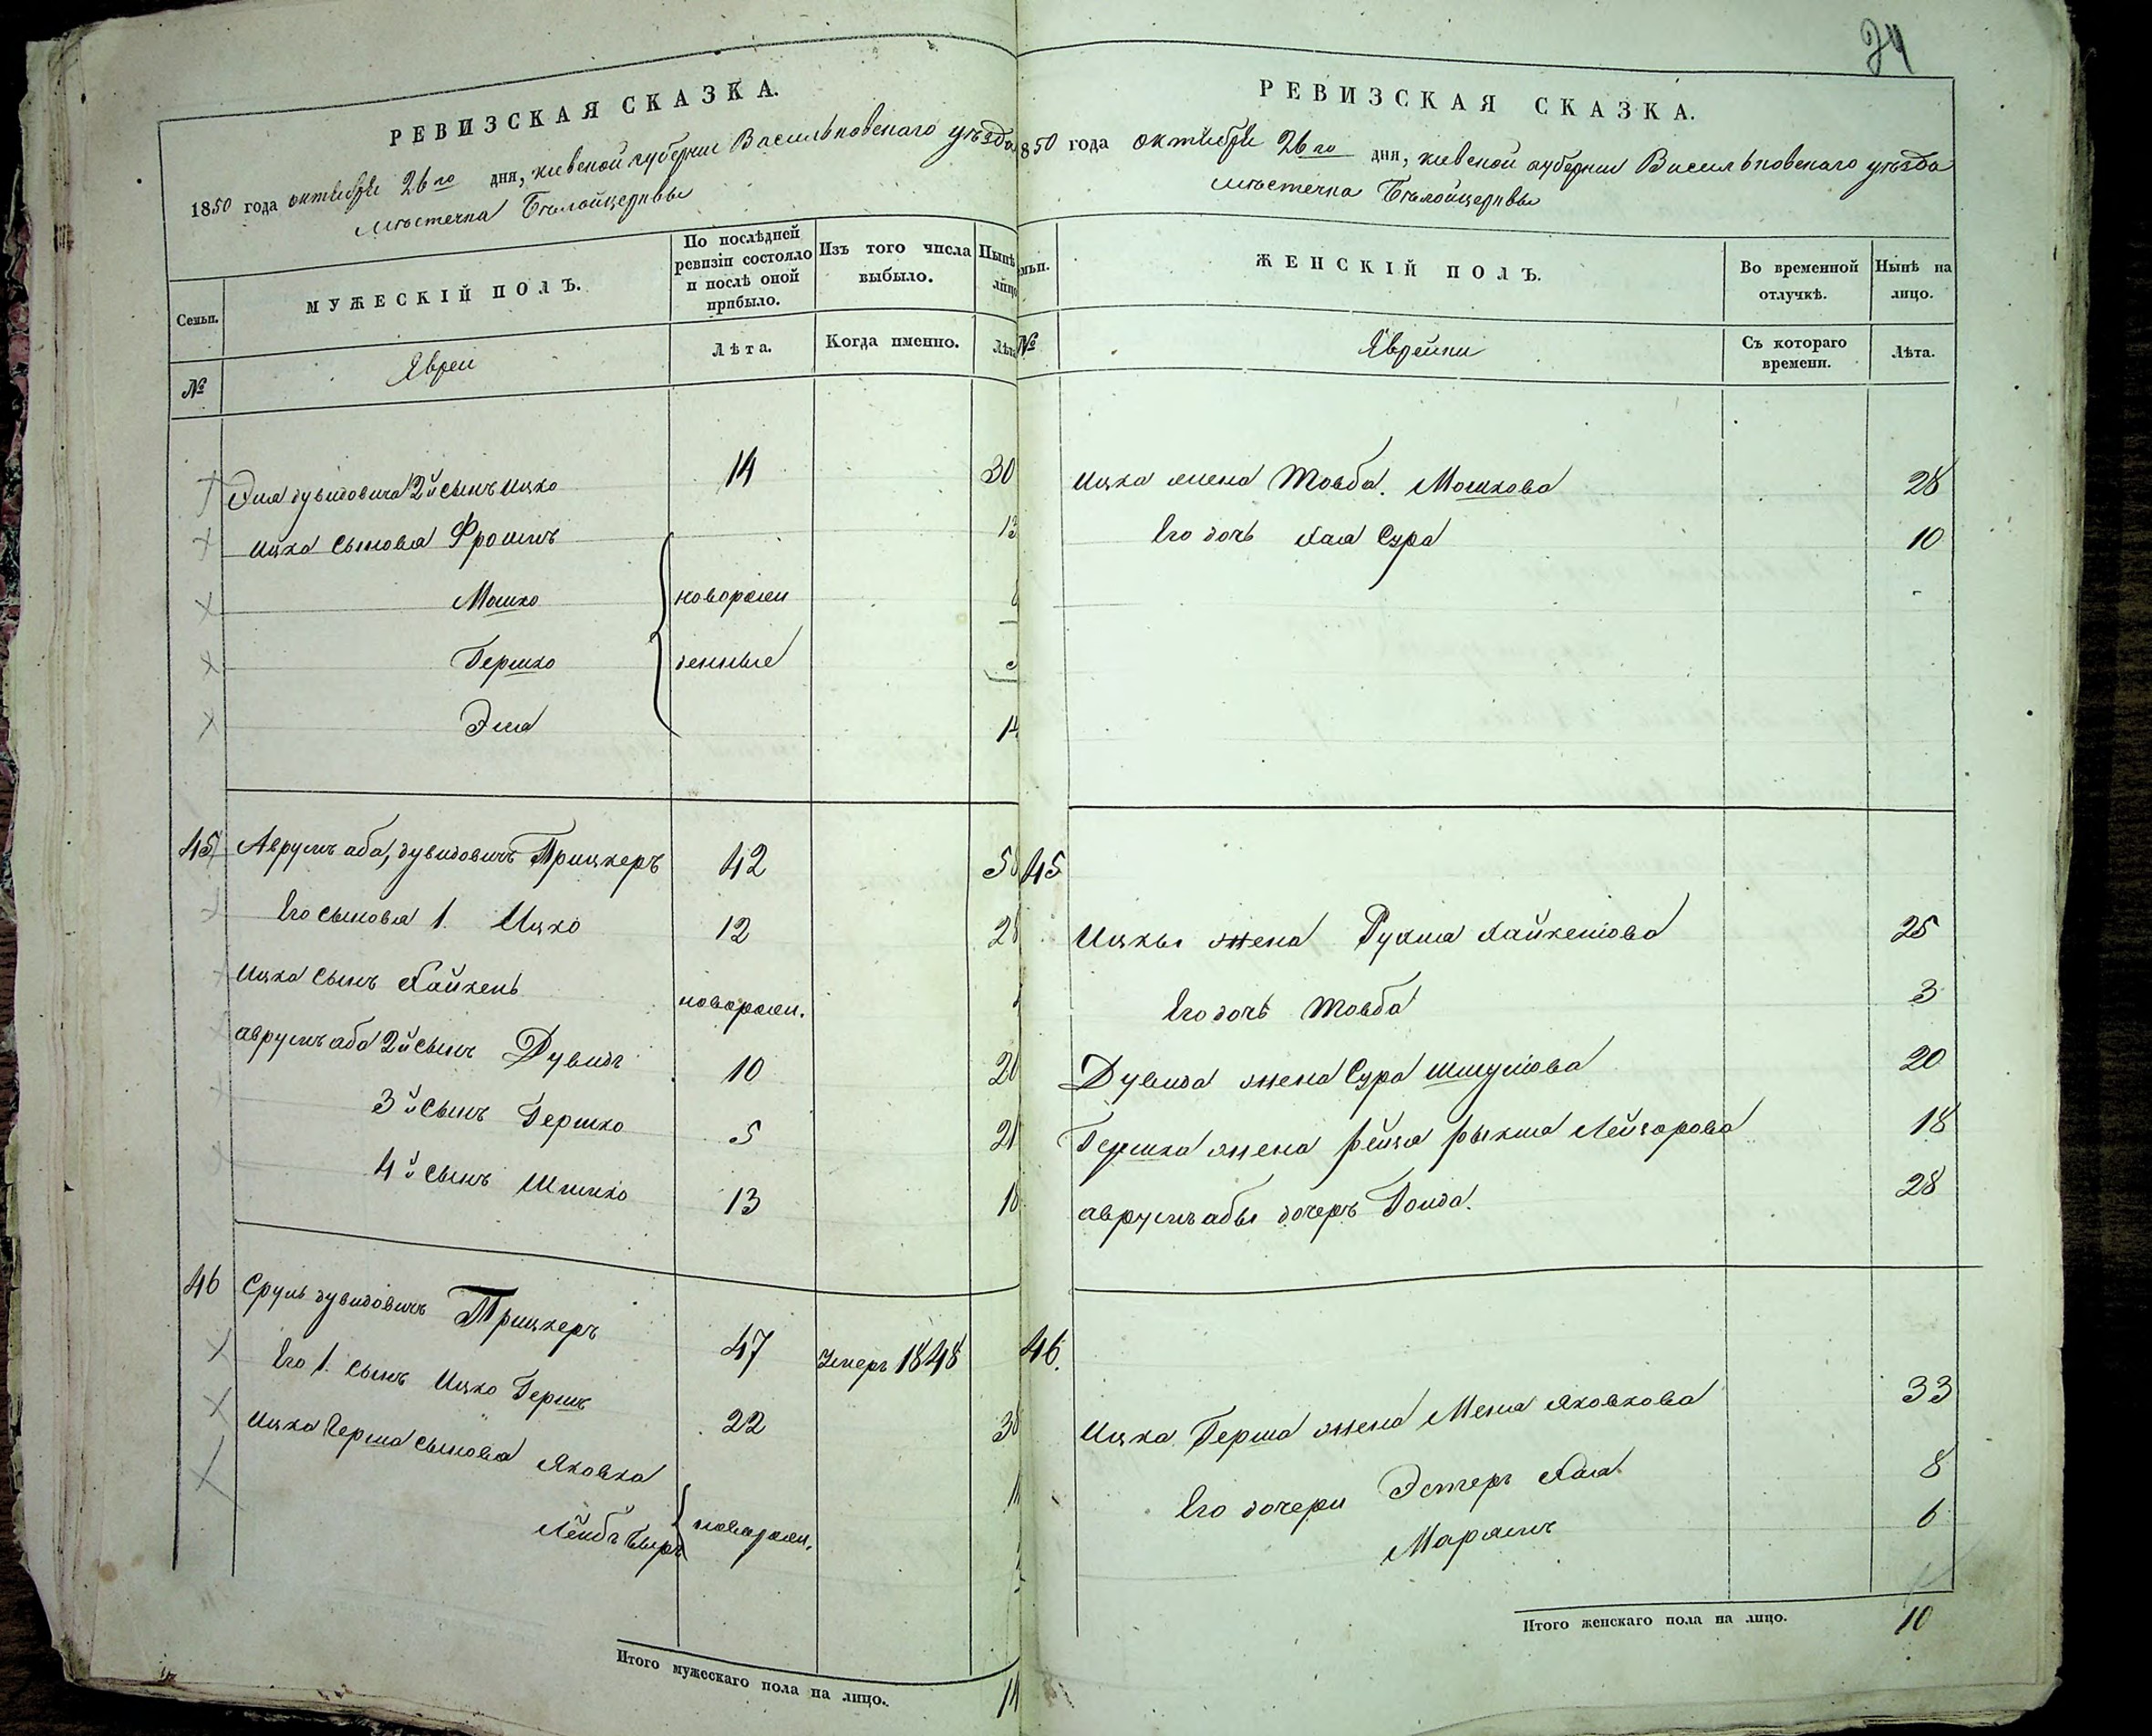 РЕВИЗСКАЯ СКАЗКА.
1850 года октября 26го дня, киевской губернии Васильковскаго уѣзда
мѣстечка Бѣлойцерквы
Семьи.
МУЖЕСКІЙ ПОЛЪ.
По послѣдней ревизіи состояло и послѣ оной прибыло.
Изъ того числа выбыло.
Нынѣ лицо
№
Евреи
Лѣта.
Когда именно.
Лѣта
Эля дувидовича 2й сынъ Ицко 14 30
Ицка сыновья Фроимъ 13
Мошко новорожен
Гершко денные
Эля
45 Аврумъ аба, дувидовичъ Трицкеръ 42 58
Его сыновья 1. Ицко 12 28
Ицка сынъ Хайкель новорожен.
аврумъ аба 2й сынъ Дувидъ 10
3й сынъ Гершко 5 21
4й сынъ Шмилко 13 18
46 Сруль дувидовичъ Трицкеръ 47 Умеръ 1848
Его 1. сынъ Ицко Гершъ 22 38
Ицка Герша сыновья Яковка
Лейбъ Беръ новорожен.
Итого мужескаго пола на лицо.
РЕВИЗСКАЯ СКАЗКА.
850 года октября 26го дня, киевской губернии Васильковскаго уѣзда
мѣстечка Бѣлойцерквы
мьи.
ЖЕНСКІЙ ПОЛЪ.
Во временной отлучкѣ.
Нынѣ на лицо.
№
Еврейки
Съ котораго времени.
Лѣта.
Ицка жена Товба Мошкова 28
Его дочь Хая Сура 10
45
Ицкы жена Рухля Хайкелова 25
Его дочь Товба 3
Дувида жена Сура Шмулова 20
Гершка жена рейзя рыхля Лейзорова 18
аврумъ абы дочеръ Голда. 28
46.
Ицка Герша жена Меня Яковкова 33
Его дочери Эстеръ Хая 8
Марьямъ 6
Итого женскаго пола на лицо. 10